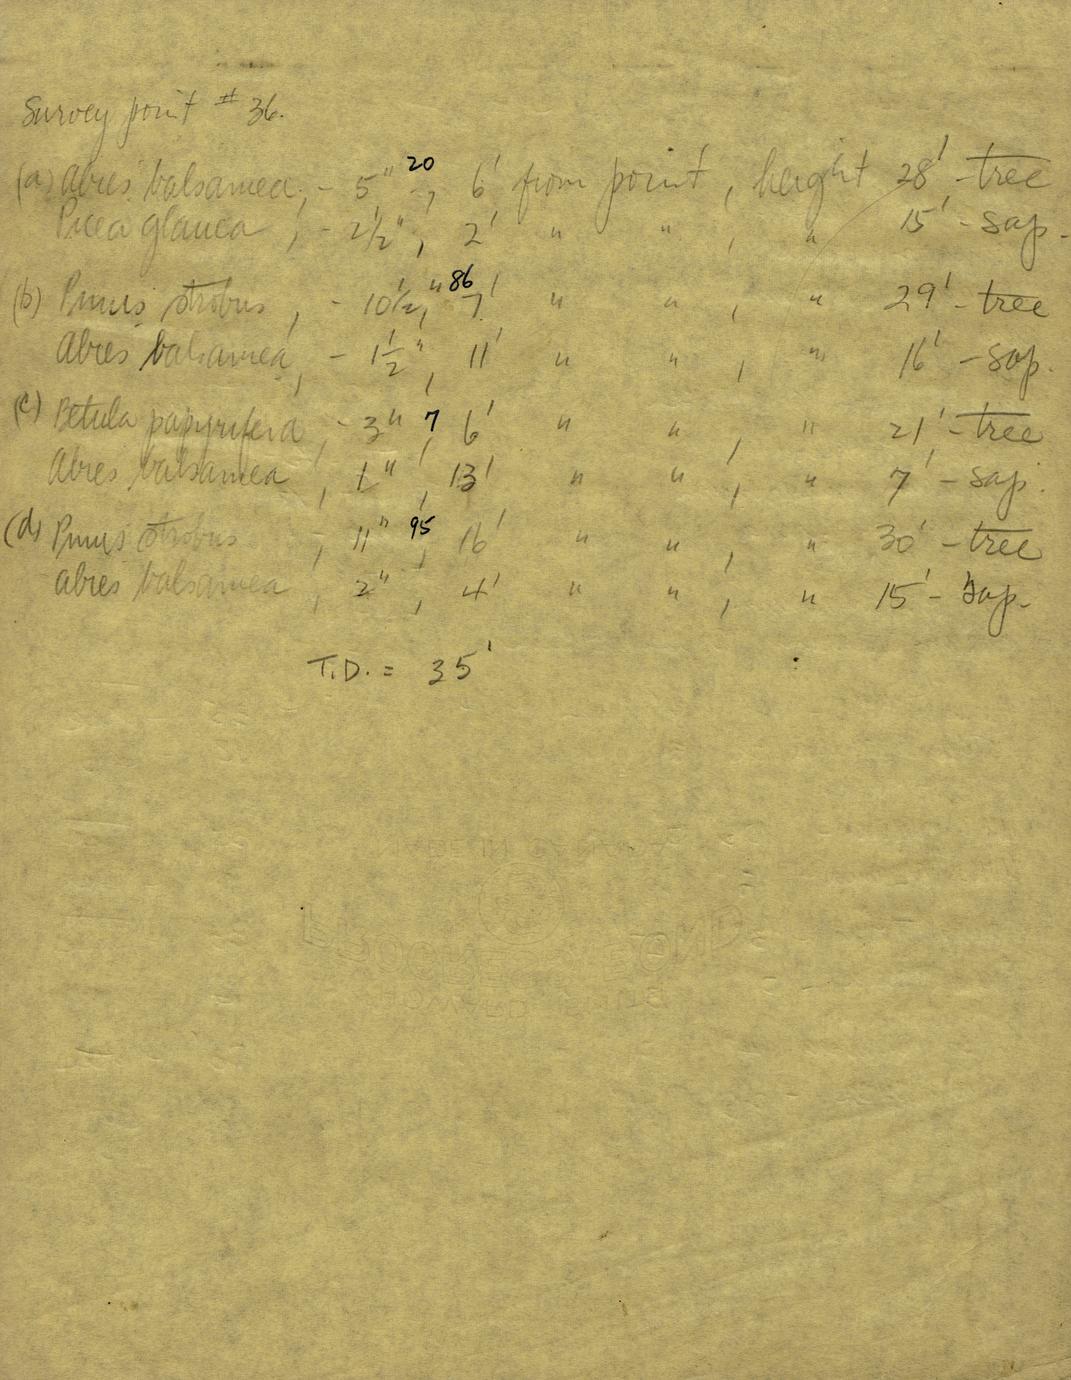 Survey point # 36.
(a) Abies balsamea, - 5" 20, 6' from point, height 28' - tree
Picea glauca, - 2 1/2", 2' " " , " 15' - sap.
(b) Pinus strobus, - 10 1/2", 86 7' " " , " 29' - tree
Abies balsamea, - 1 1/2", 11' " " , " 16' - sap.
(c) Betula papyrifera, - 3" 7, 6' " " , " 21' - tree
Abies balsamea, 1", 13' " " , " 7' - sap.
(d) Pinus strobus, 11" 95, 16' " " , " 30' - tree
Abies balsamea, 2", 4' " " , " 15' - sap.
T.D. = 35'
MADE IN CANADA
PROGRESS BOND
HOWARD SMITH